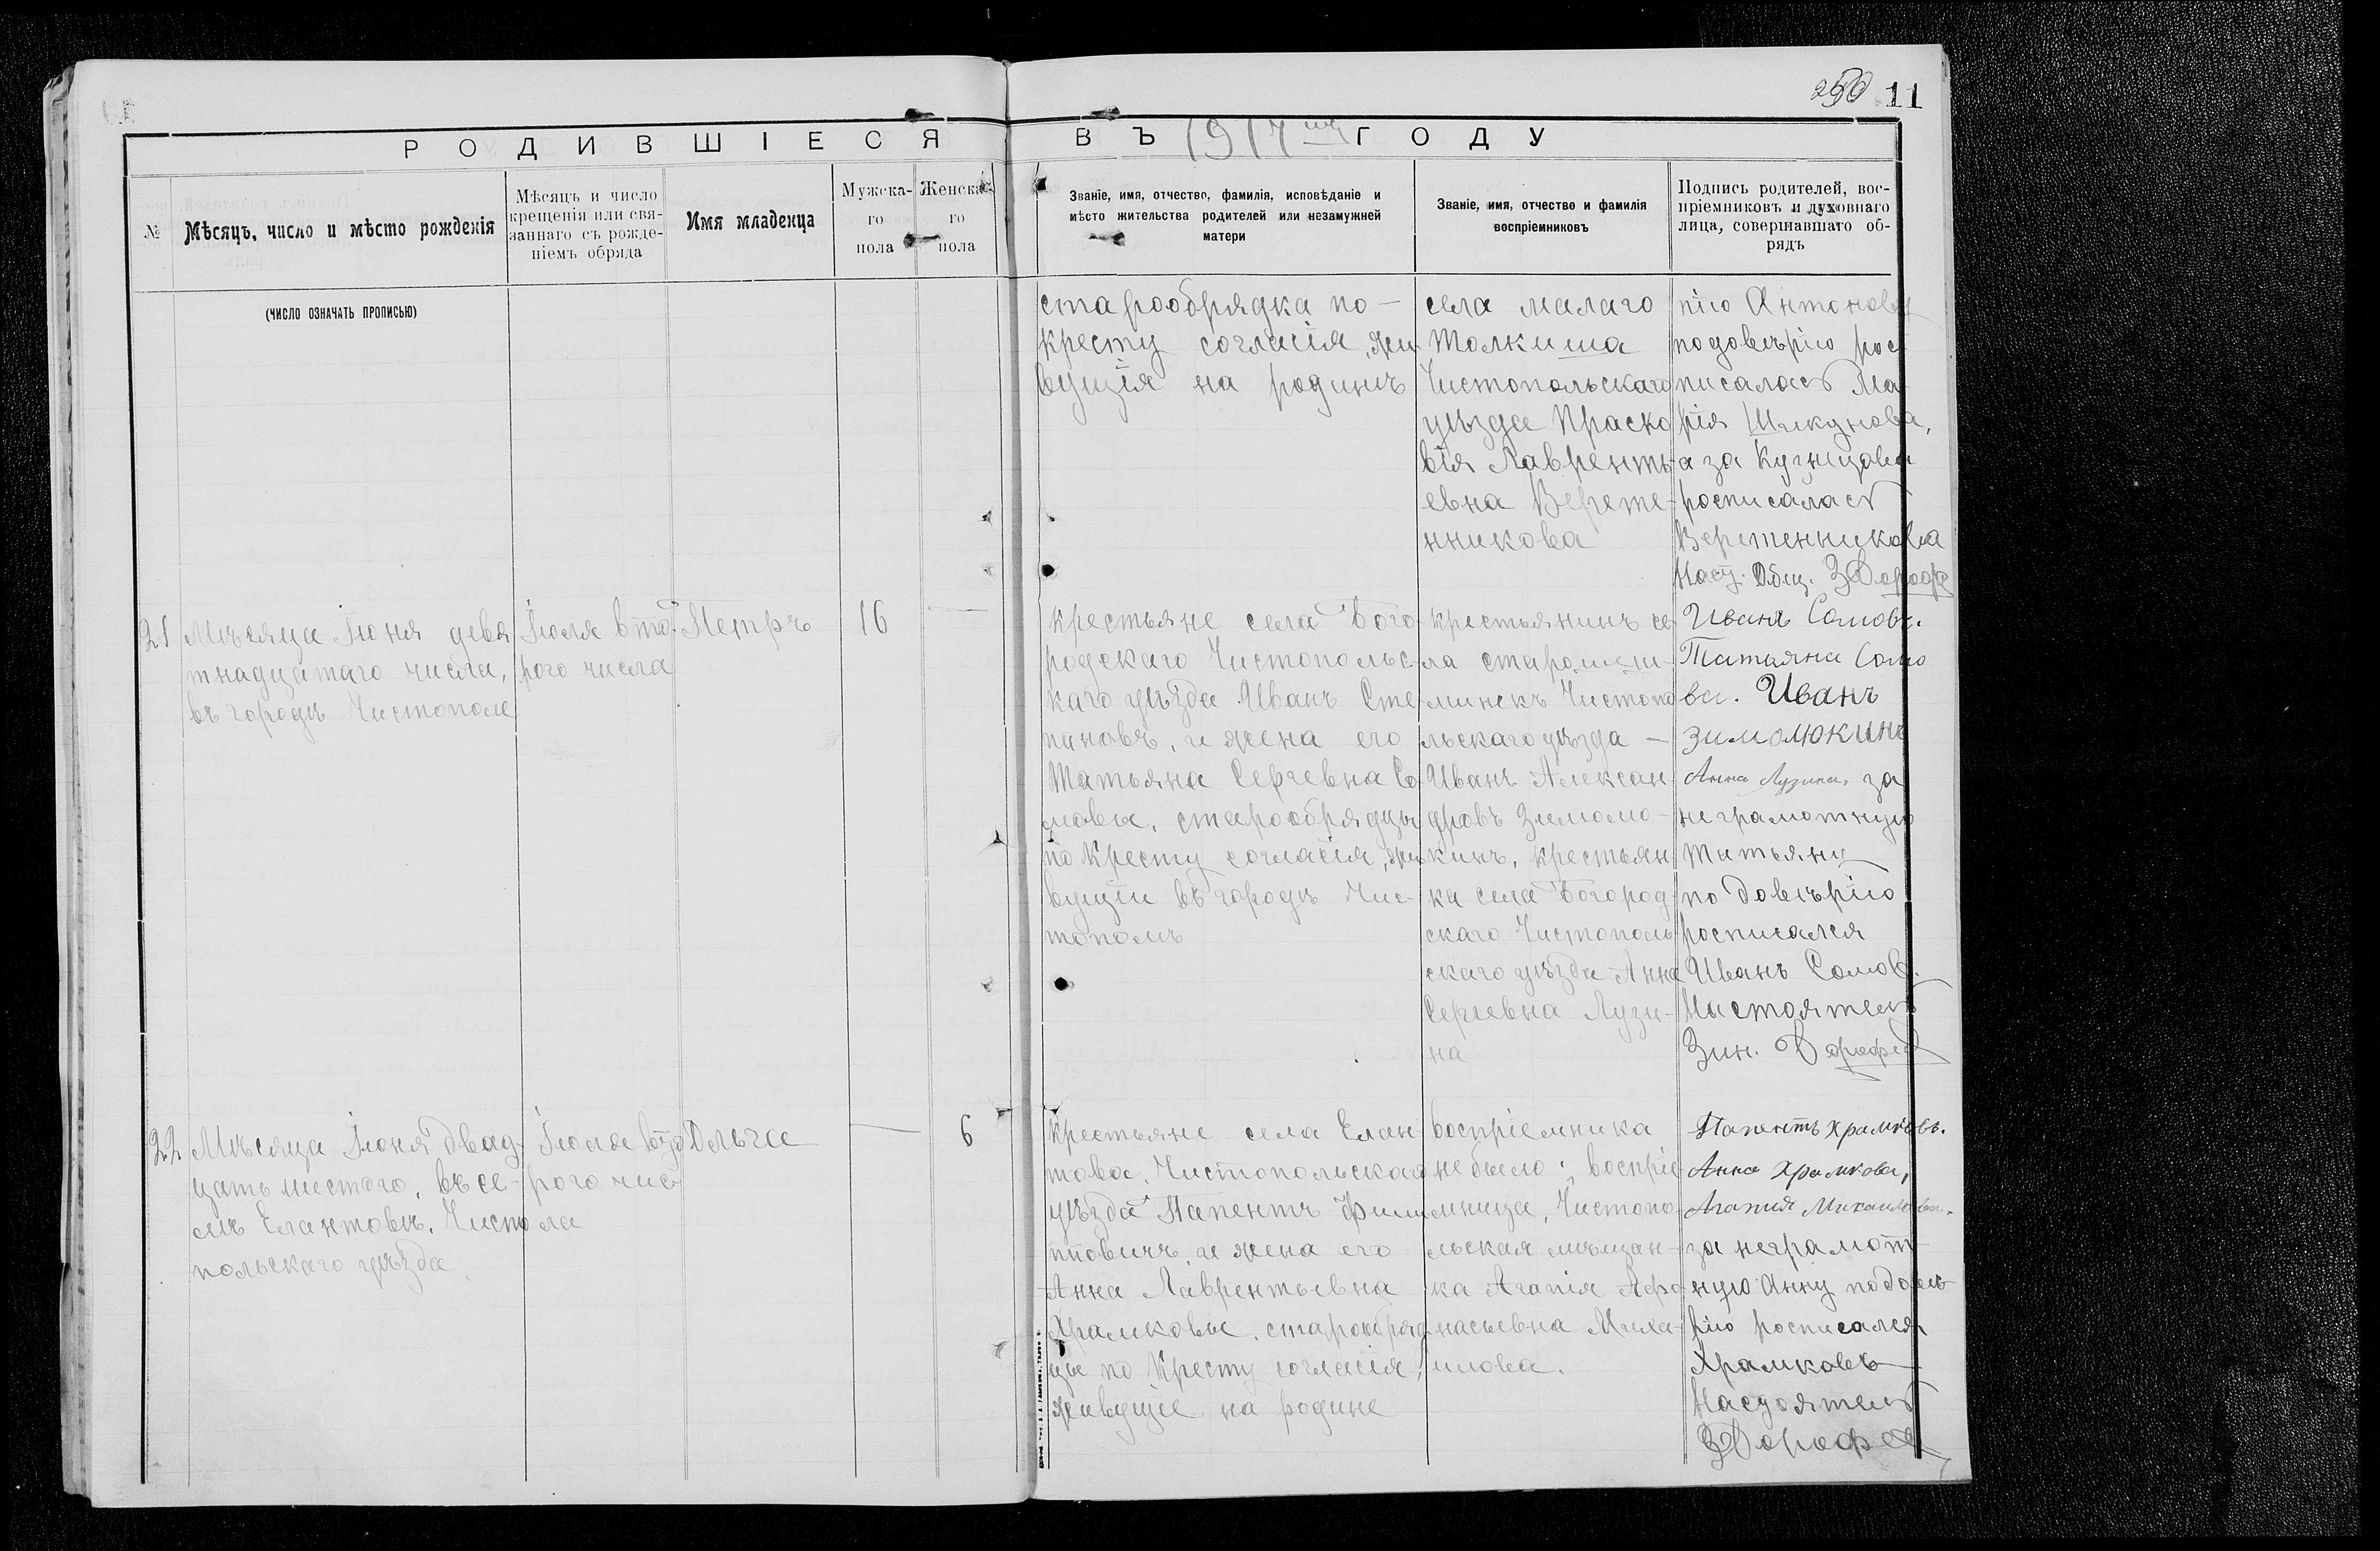 250 11
РОДИВШІЕСЯ ВЪ 1917 мъ ГОДУ
№
Мѣсяцъ, число и мѣсто рожденія
Мѣсяцъ и число
крещенія или свя-
заннаго съ рожде-
ніемъ обряда
Имя младенца
Мужска-
го
пола
Женска-
го
пола
Званіе, имя, отчество, фамилія, исповѣданіе и
мѣсто жительства родителей или незамужней
матери
Званіе, имя, отчество и фамилія
воспріемниковъ
Подпись родителей, вос-
пріемниковъ и духовнаго
лица, совершавшаго об-
рядъ
(ЧИСЛО ОЗНАЧАТЬ ПРОПИСЬЮ)
старообрядка по-
кресту согласія, жи
вущія на родинѣ
села малаго
Толкиша
Чистопольскаго
уѣзда Праско
вія Лаврентье
евна Верете-
нникова
пію Антонову
подовѣрію рос
писалась Ма
рія Шикунова,
а за Кузнецова
росписалась
Веретенникова
Наст. Общ. З Дороф
21
Мѣсяца Іюня девя
тнадцатаго числа,
въ городѣ Чистополе
Іюля вто
рого числа
Петръ
16
крестьяне села Бого
родскаго Чистопольс-
каго уѣзда Иванъ Сте
пановъ, и жена его
Татьяна Сергевна Со
мовы, старообрядцы
по Кресту согласія, жи
вущіи въ городѣ Чис-
тополѣ
крестьянинъ се
ла староши-
минскъ Чистопо
льскаго уѣзда —
Иванъ Алексан
дровъ Зимолю-
кинъ, крестьян
ка села Богород
скаго Чистополь
скаго уѣзда Анна
Сергевна Лузи-
на
Иванъ Сомовъ.
Татьяна Сомо
ва. Иванъ
зимолюкинъ
Анна Лузина, за
неграмотную
Татьяну
по довѣрію
росписался
Иванъ Сомов.
Настоятель
Зин. Дорофе
22
Мѣсяца Іюня двад-
цать шестаго, въ се-
лѣ Елантовѣ, Чисто
польскаго уѣзда
Іюля вто
рого чис
ла
Ольга
6
крестьяне села Елан-
това, Чистопольскаго
уѣзда Папентъ Фили
пповичъ и жена его
Анна Лаврентьевна
Храмковы, старообряд
цы по Кресту согласія,
живущіе на родине
воспріемника
не было; воспріе
мница, Чистопо
льская мѣщан-
ка Агапія Афо
насьевна Миха-
илова.
Папентъ храмковъ.
Анна Храмкова,
Агапия Михаилова.
за неграмот-
ную Анну подовѣ
рію росписался
Храмковъ
Настоятель
З Дорофе